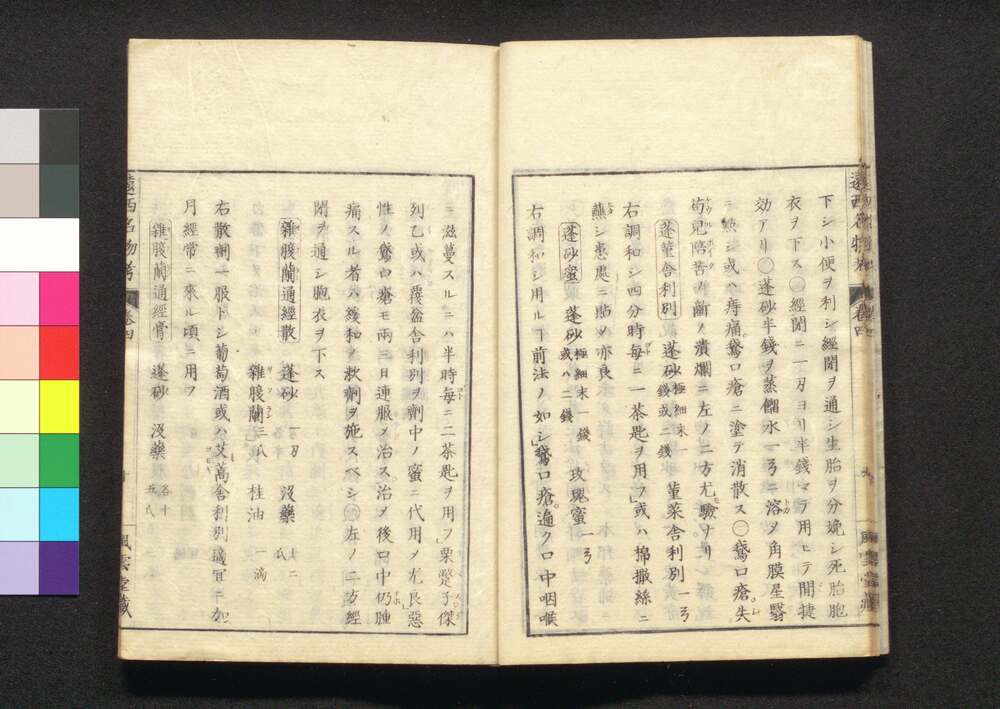 下シ小便ヲ利シ經閉ヲ通シ生胎ヲ分娩シ死胎胞
衣ヲ下ス〇經閉ニ一刄ヨリ半錢マテ用ヒテ間捷
効アリ〇蓬砂半錢ヲ蒸餾水一弓ニ溶ヲ角膜星翳
ニ點シ或ハ痔痛鵞口瘡ニ塗テ消散ス〇鵞口瘡失
苟兒陪苦ノ齗ノ潰爛ニ左ノ二方尤驗ナリ
蓬菫舎利別 蓬砂 極細末一錢或二錢 菫菜舎利別 一弓
右調和シ四分時每ニ一茶匙ヲ用フ或ハ撒絲ニ
蘸シ患處ニ貼メ亦良
蓬砂蜜 蓬砂 極細末一錢或ハ二錢 玫瑰蜜 一弓
右調和シ用ル丁前法ノ如シ鵞口瘡遍ク口中咽喉
ニ滋蔓スルニハ半時每ニ二茶匙ヲ用フ栗蹔子傑
列乙或ハ覆盆舎利別ヲ劑中ノ蜜ニ代用メ尤良惡
性ノ鵞口瘡モ兩三日連服メ治ス治メ後口中仍腫
痛スル者ハ緩和ノ漱劑ヲ施スベシ〇左ノ二方經
閉ヲ通シ胞衣ヲ下ス
雜腹蘭通經散 蓬砂 一刄 沒藥 十二瓜
雜腹蘭 二瓜 桂油 一滴
右散劑一服トシ葡萄酒或ハ艾蒿舎利別 ニ加
月經常ニ來ル頃ニ用フ
雜腹蘭通經膏 蓬砂 沒藥 各十五瓜
遠西名物考 卷四
九
風雲堂藏